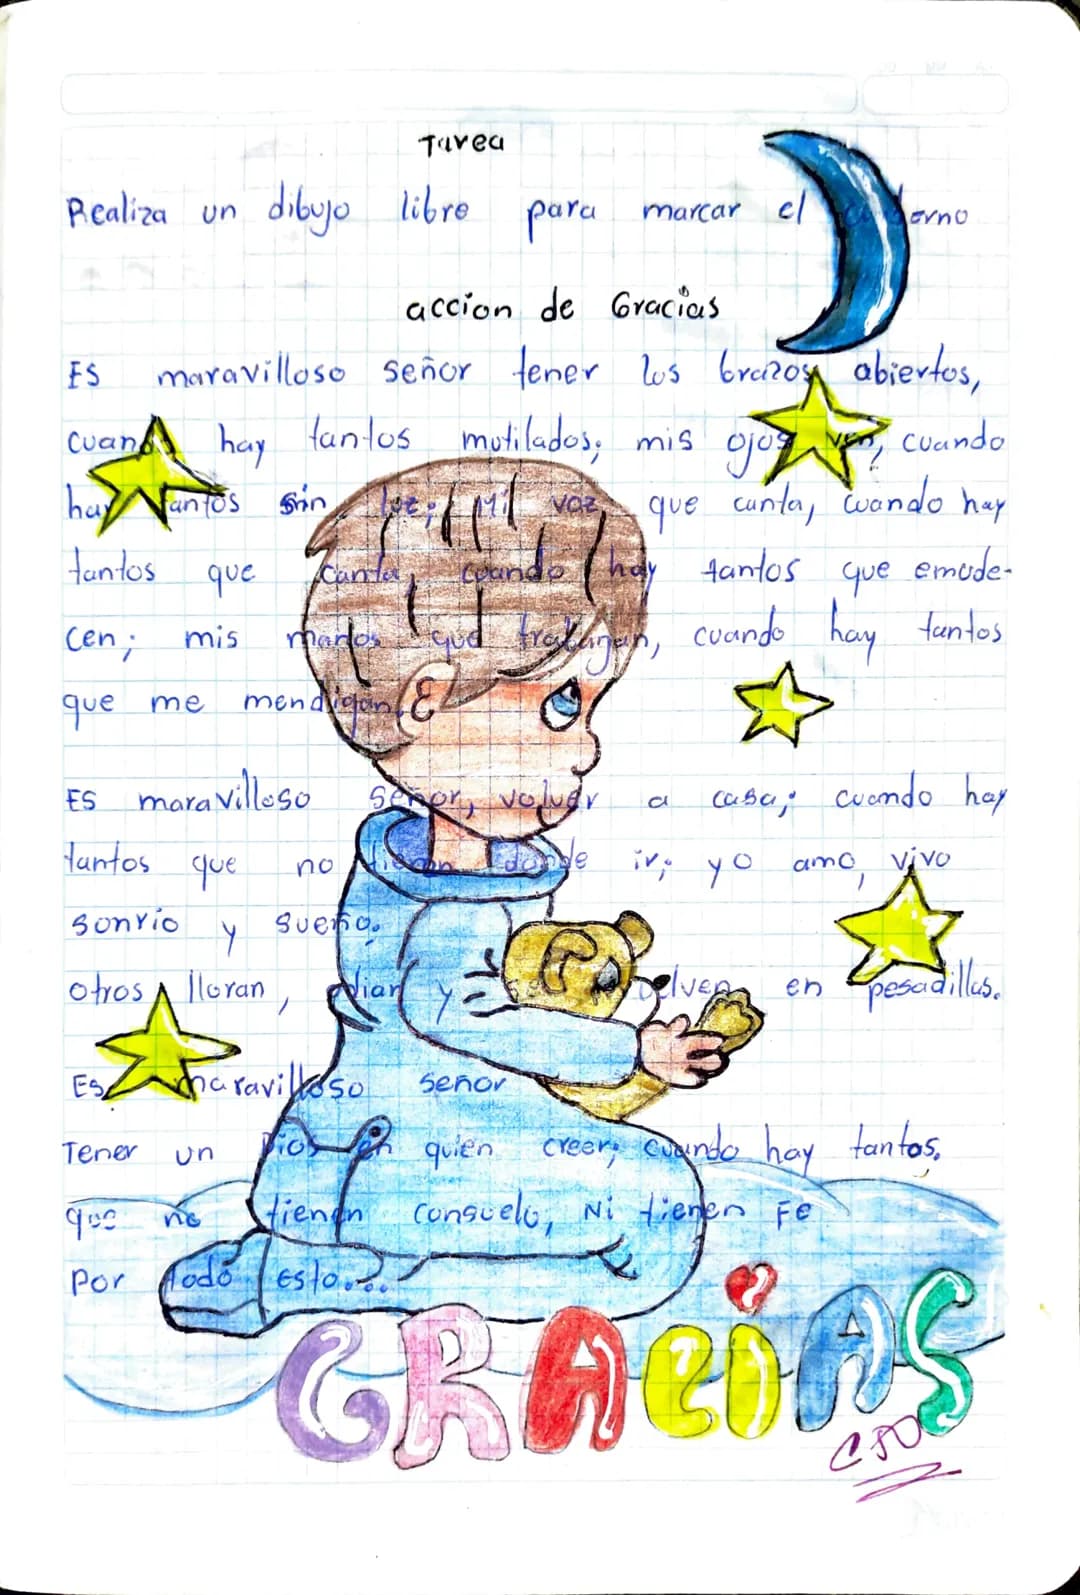 Tarea
Realiza un dibujo libre para marcar el cuaderno
accion de Gracias
ES maravilloso señor tener los brazos abiertos,
cuando hay tantos mutilados; mis ojos ven, cuando
hay tantos sin luz; Mi voz, que canta, cuando hay
tantos que canta, cuando hay tantos que emude-
cen; mis manos que trabagan, cuando hay tantos
que me mendigan.
ES maravilloso señor, volver a casa; cuando hay
tantos que no tienen donde ir; yo amo, vivo
sonrio y sueño.
otros lloran, dian y en pesadillas.
Es maravilloso señor
Tener un Dios en quien creer; cuando hay tantos.
que no tienen consuelo, Ni tienen Fe
Por todo esto...
GRACIAS